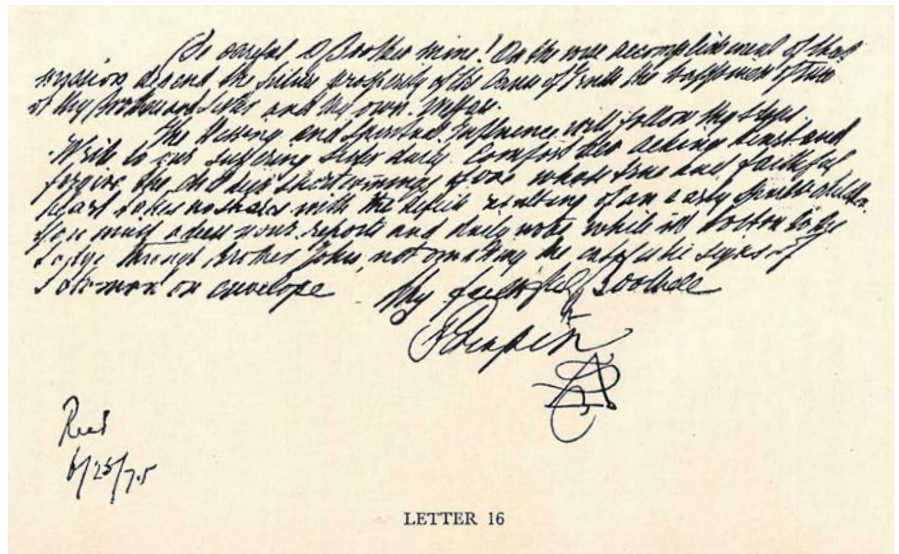 Be careful O Brother mine! On the wise accomplishment of that
mission depend the future prosperity of the Cause of Truth the happiness of two
of thy Brothers and Sister and thy own.
The Blessing and Spiritual Influence will follow thy steps.
Write to our suffering Sister daily. Comfort her aching heart and
forgive the childish shortcomings of one whose true and faithful
heart takes no share with the defects resulting of an early
You must adress your reports and daily notes while in Boston to the
Lodge through Brother John, not omitting the signs of
Solomon on envelope Thy faithful
Serapis
Recd
6/25/75
LETTER 16